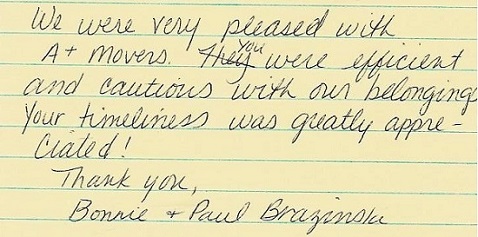 We were very pleased with
A+ Movers. They you were efficient
and cautious with our belongings
Your timeliness was greatly appre-
ciated!
Thank you,
Bonnie + Paul Brazinski